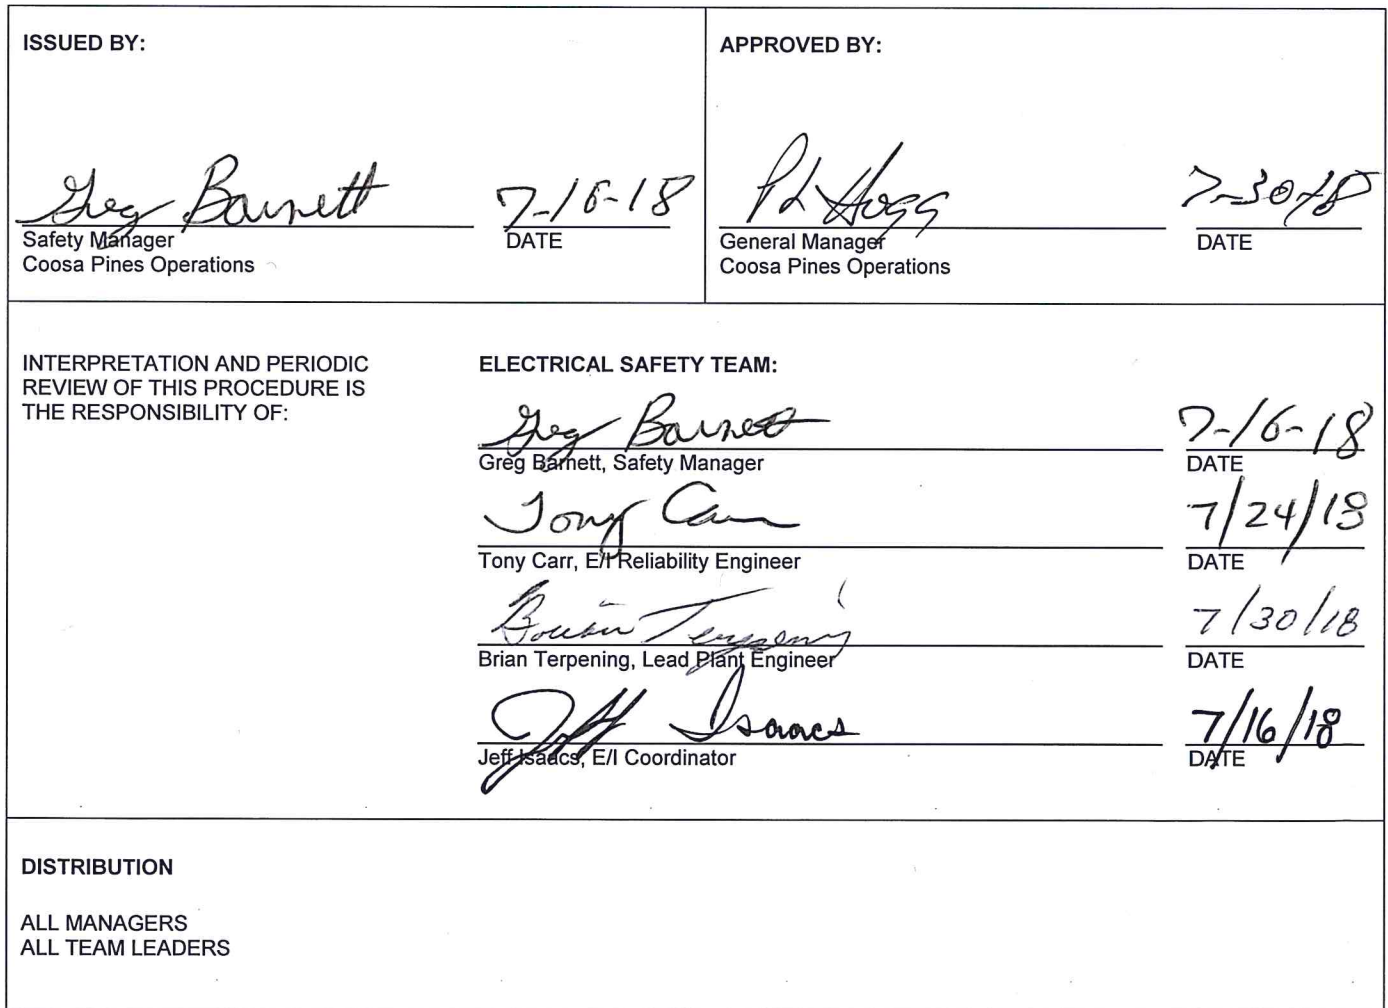 ISSUED BY:
Greg Barnett 7-16-18
Safety Manager DATE
Coosa Pines Operations
APPROVED BY:
Hogg 7-30-18
General Manager DATE
Coosa Pines Operations
INTERPRETATION AND PERIODIC
REVIEW OF THIS PROCEDURE IS
THE RESPONSIBILITY OF:
ELECTRICAL SAFETY TEAM:
Greg Barnett 7-16-18
Greg Barnett, Safety Manager DATE
Tony Carr 7/24/18
Tony Carr, E/I Reliability Engineer DATE
Brian Terpening 7/30/18
Brian Terpening, Lead Plant Engineer DATE
Jeff Isaacs 7/16/18
Jeff Isaacs, E/I Coordinator DATE
DISTRIBUTION
ALL MANAGERS
ALL TEAM LEADERS